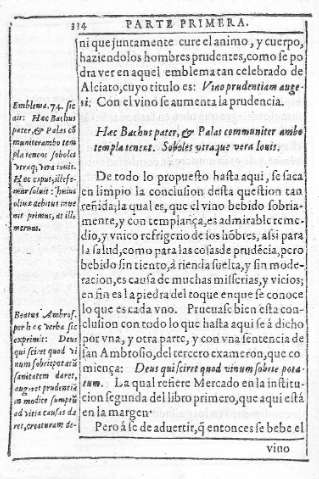 334 PARTE PRIMERA.
ni que juntamente cure el animo, y cuerpo,
haziendolos hombres prudentes, como se po
dra ver en aquel emblema tan celebrado de
Alciato, cuyo titulo es: Vino prudentiam auge-
ri: Con el vino se aumenta la prudencia.
Hæc Bachus pater, & Palas communiter ambo
templa tenent. Soboles vtraque vera Iouis.
De todo lo propuesto hasta aqui, se saca
en limpio la conclusion desta question tan
reñida, la qual es, que el vino bebido sobria-
mente, y con templança, es admirable reme-
dio, y vnico refrigerio de los hõbres, assi para
la salud, como para las cosas de prudẽcia, pero
bebido sin tiento, à rienda suelta, y sin mode-
racion, es causa de muchas misserias, y vicios;
en fin es la piedra del toque en que se conoce
lo que es cada vno. Prueuase bien esta con-
clusion con todo lo que hasta aqui se à dicho
por vna, y otra parte, y con vna sentencia de
san Ambrosio, del tercero exameron, que co
miença: Deus qui sciret quod vinum sobrie pota-
tum. La qual refiere Mercado en la institu-
cion segunda del libro primero, que aqui està
en la margen.
Pero à se de aduertir, q̃ entonces se bebe el
vino
Emblema. 74. sic
ait: Hæc Bachus
pater, & Palas cõ
muniter ambo tem
pla tenent soboles
vtraq; vera Iouis.
Hæc caput, ille
mur soluit: huius
oliuæ debitus inue
nit primus, at ille
merum.
Beatus Ambros.
per hec verba sic
exprimit: Deus
qui sciret quod vi
num sobrie potatũ
sanitatem daret,
augeret prudentiã
in modice sumptũ
ad vitia causas da
ret, creaturam de-